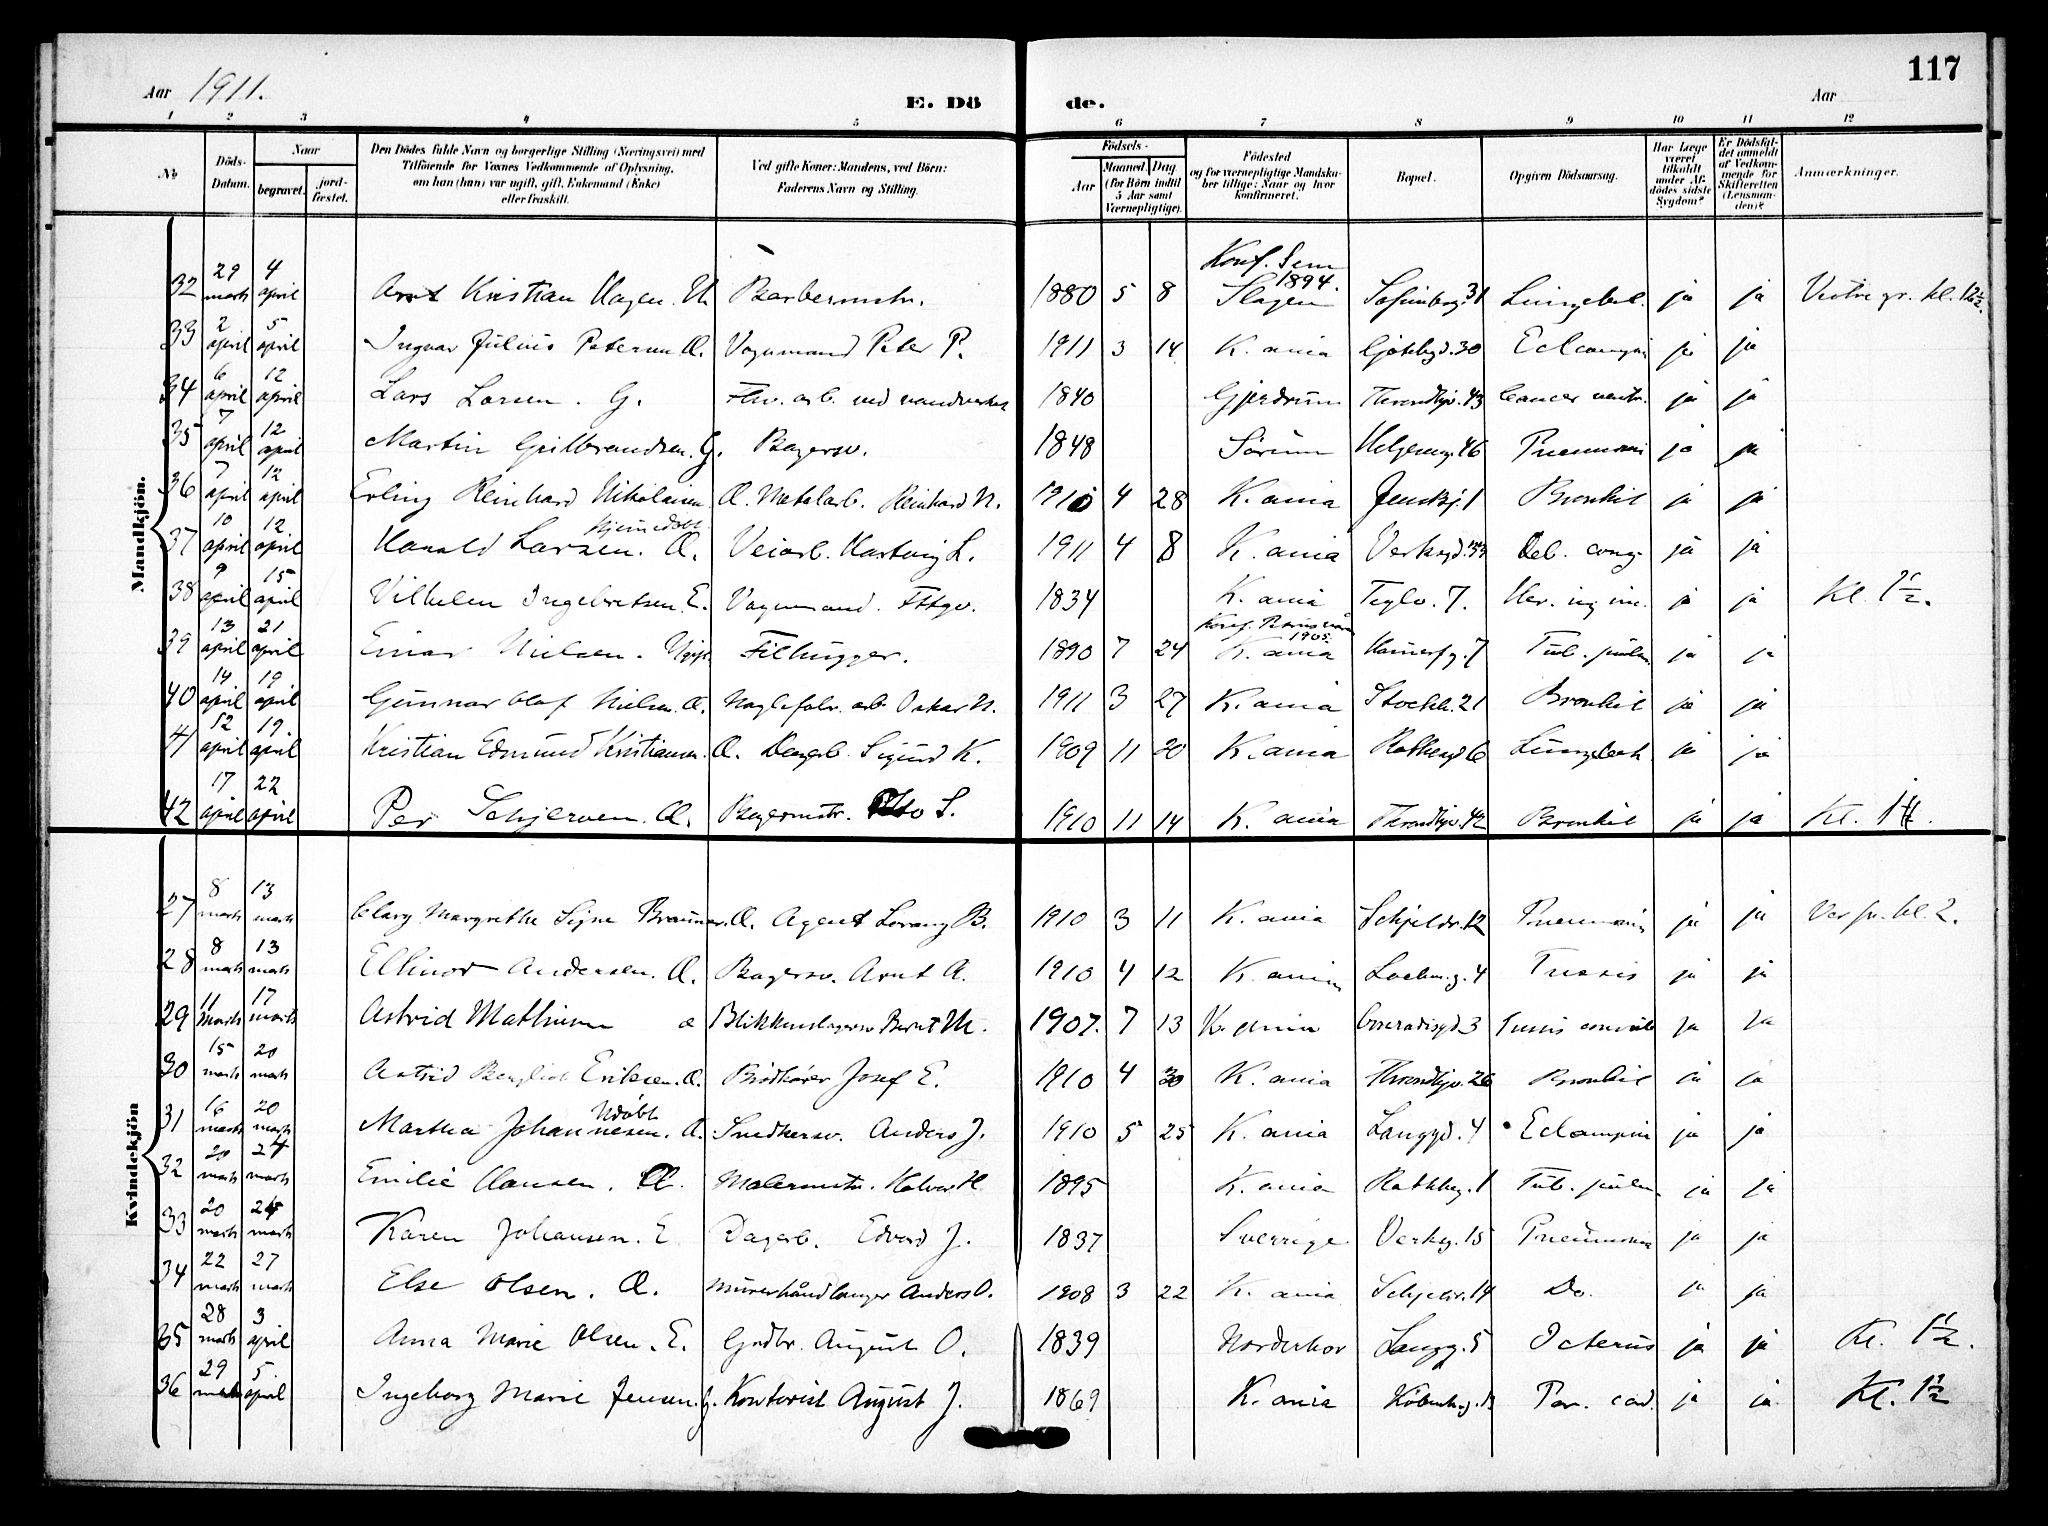 117
Aar 1911. E. Dö de. Aar
1 2 3 4 5 6 7 8 9 10 11 12
No
Döds-Datum.
Naar
begravet.
jord-fæstet.
Den Dödes fulde Navn og borgerlige Stilling (Næringsvei) med
Tilföiende for Voxnes Vedkommende af Oplysning,
om han (hun) var ugift, gift, Enkemand (Enke)
eller fraskilt.
Ved gifte Koner: Mandens, ved Börn:
Faderens Navn og Stilling.
Födsels-
Aar
Maaned. Dag
(for Börn indtil
5 Aar samt
Værnepligtige).
Födested
og for værnepligtige Mandska-
ber tillige: Naar og hvor
konfirmeret.
Bopæl.
Opgiven Dödsaarsag.
Har Læge
været
tilkaldt
under Af-
dödes sidste
Sygdom?
Er Dödsfal-
det anmeldt
af Vedkom-
mende for
Skifteretten
(Lensman-
den)?
Anmærkninger.
Mandkjön.
32 29 marts 4 april Arnt Kristian Hagen. U. Barbermstr. 1880 5 8 Konf. Sem 1894. Slagen Sofienbg. 31 ja ja Vestre gr. kl. 12½.
33 2 april 5 april Ingvar Julius Petersen Æ. Vognmand Peter P. 1911 3 14 K.ania 30 Eclampsi ja ja
34 6 april 12 april Lars Larsen. G. arb. ved vandverket 1840 Gjerdrum Throndhjv. 43 Cancer ventr. ja ja
35 7 april 12 april Martin Gulbrandsen. G. Bagersv. 1848 Sörum Helgesensg. 46 Pneumoni ja ja
36 7 april 12 april Erling Reinhard Nikolaisen Æ. Metalarb. Reinhard N. 1910 4 28 K.ania 1 Bronkit ja ja
37 10 april 12 april Harald Larsen. hjemmedöbt Æ. Veiarb. Hartvig L. 1911 4 8 K.ania 33 Deb. cong. ja ja
38 9 april 15 april Vilhelm Ingebretsen. E. Vognmand. 1834 K.ania Teglv. 7. Her. ing. inc. ja ja Kl. 1½.
39 13 april 21 april Einar Nielsen. Ugift Filhugger. 1890 7 24 Konf. 1905. K.ania 7 Tub. pulm. ja ja
40 14 april 19 april Gunnar Olaf Nielsen. Æ. arb. Oskar N. 1911 3 27 K.ania Stockh. 21 Bronkit ja ja
41 12 april 19. april Kristian Edmund Kristiansen. Æ. Dagarb. Sigurd K. 1909 11 20 K.ania 6 ja ja
42 17 april 22 april Per Schjerven. Æ. Bagermstr. Otto S. 1910 11 14 K.ania Throndhjv. 42 Bronkit ja ja Kl. 1
Kvindekjön
27 8 marts 13 marts Clary Margrethe Signe Braumer. Æ. Agent Lorang B. 1910 3 11 K.ania 12 Pneumoni ja ja kl. 2.
28 8 marts 13 marts Ellinor Andersen. Æ. Bagersv. Arnt A. 1910 4 12 K.ania 4 Tussis ja ja
29 11 marts 17 marts Astrid Mathisen æ Blikkenslagersv Bernt M. 1907. 7 13 K.ania Conradisgd. 3 Tussis convuls ja ja
30 15 marts 20 marts Astrid Bergliot Eriksen. Æ. Brödkörer Josef E. 1910 4 30 K.ania Throndhjv. 26 Bronkit ja ja
31 16 marts 20 marts Martha Johannesen. Udöbt Æ. Snedkersv. Anders J. 1910 5 25 K.ania Langgd. 4 Eclampsi ja ja
32 20 marts 24 marts Emilie Hansen. Æ. Malermstr. Halvor H. 1895 K.ania Rathkeg. 1 Tub. pulm. ja ja
33 20 marts 24 marts Karen Johansen. E. Dagarb. Edvard J. 1837 Sverrige Verksg. 15 Pneumoni ja ja
34 22 marts 27 marts Else Olsen. Æ. Murerhåndlanger Anders O. 1908 3 22 K.ania 14 Do. ja ja
35 28 marts 3 april Anna Marie Olsen. E. Gårdbr. August O. 1839 Norderhov Langg. 5 Icterus ja ja Kl. 1½.
36 29 marts 5. april Ingeborg Marie Jensen. G. Kontorist August J. 1869 K.ania Par. cord. ja ja Kl. 1½